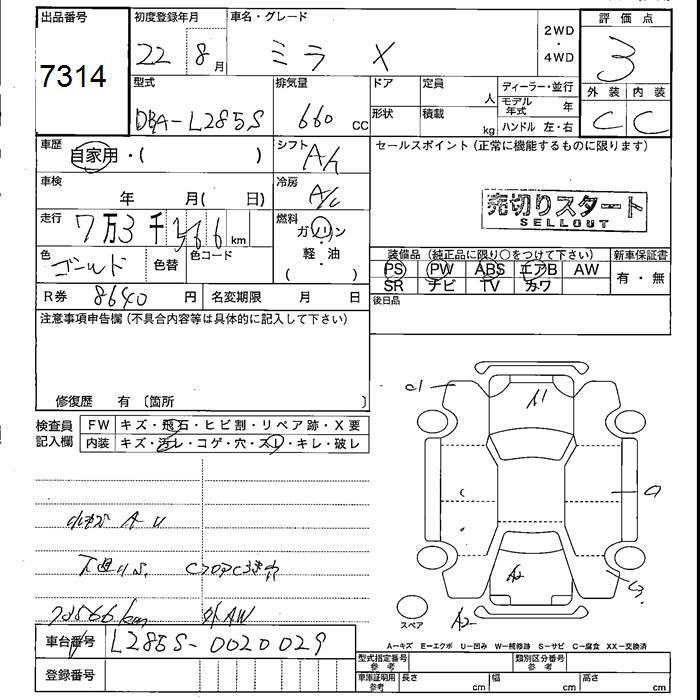 出品番号
7314
初度登録年月
22 8月
車名・グレード
ミラ X
2WD
・
4WD
評価点
3
外装 内装
C C
型式
DBA-L285S
排気量
660 cc
ドア
定員
人
形状
積載
kg
ディーラー・並行
モデル年式 年
ハンドル 左・右
車歴
自家用・( )
シフト
車検
年 月( 日)
冷房
A/C
走行
7万3千566km
燃料
ガソリン
・
軽・油
( )
色
ゴールド
色替
色コード
R券 8640円
名変期限 月 日
セールスポイント(正常に機能するものに限ります)
売切りスタート
SELLOUT
装備品(純正品に限り○をつけて下さい)
新車保証書
PS PW ABS エアB AW
SR ナビ TV カワ
有・無
後日品
注意事項申告欄(不具合内容等は具体的に記入して下さい)
修復歴 有〔箇所 〕
検査員記入欄
FW キズ・飛石・ヒビ割・リペア跡・X要
内装 キズ・汚レ・コゲ・穴・スレ・キレ・破レ
小キズ A U
73566km 外AW
A1
A2
A2
スペア
A―キズ E―エクボ U―凹み W―補修跡 S―サビ C―腐食 XX―交換済
車台番号 L285S-0020029
登録番号
型式指定番号 参考
類別区分番号 参考
車庫証明用 参考
長さ cm
幅 cm
高さ cm